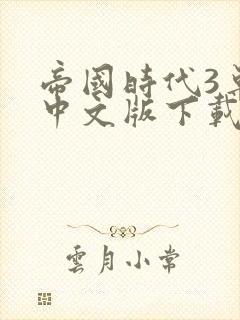 帝國時代3
中文版下載
雲月小常